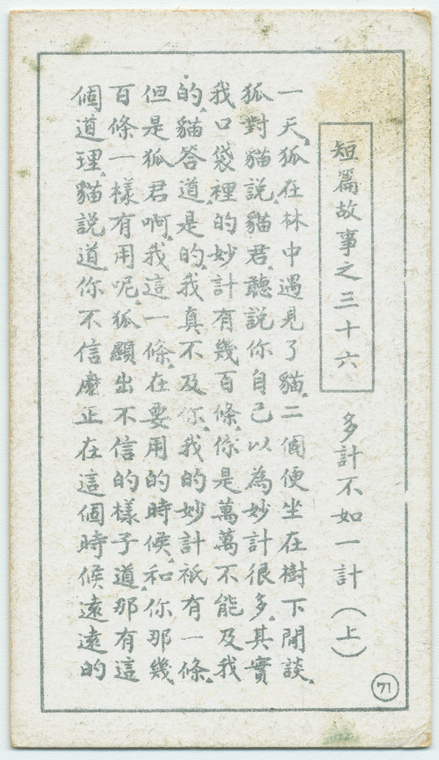 短篇故事之三十六
多計不如一計（上）
一天，狐在林中遇見了貓，二個便坐在樹下閒談。
狐對貓說，貓君，聽說你自己以為妙計很多，其實
我口袋裡的妙計有幾百條，你是萬萬不能及我
的，貓答道，是的，我真不及你，我的妙計祇有一條，
但是狐君啊，我這一條，在要用的時候，和你那幾
百條一樣有用呢，狐顯出不信的樣子道，那有這
個道理，貓說道，你不信麼，正在這個時候，遠遠的
71